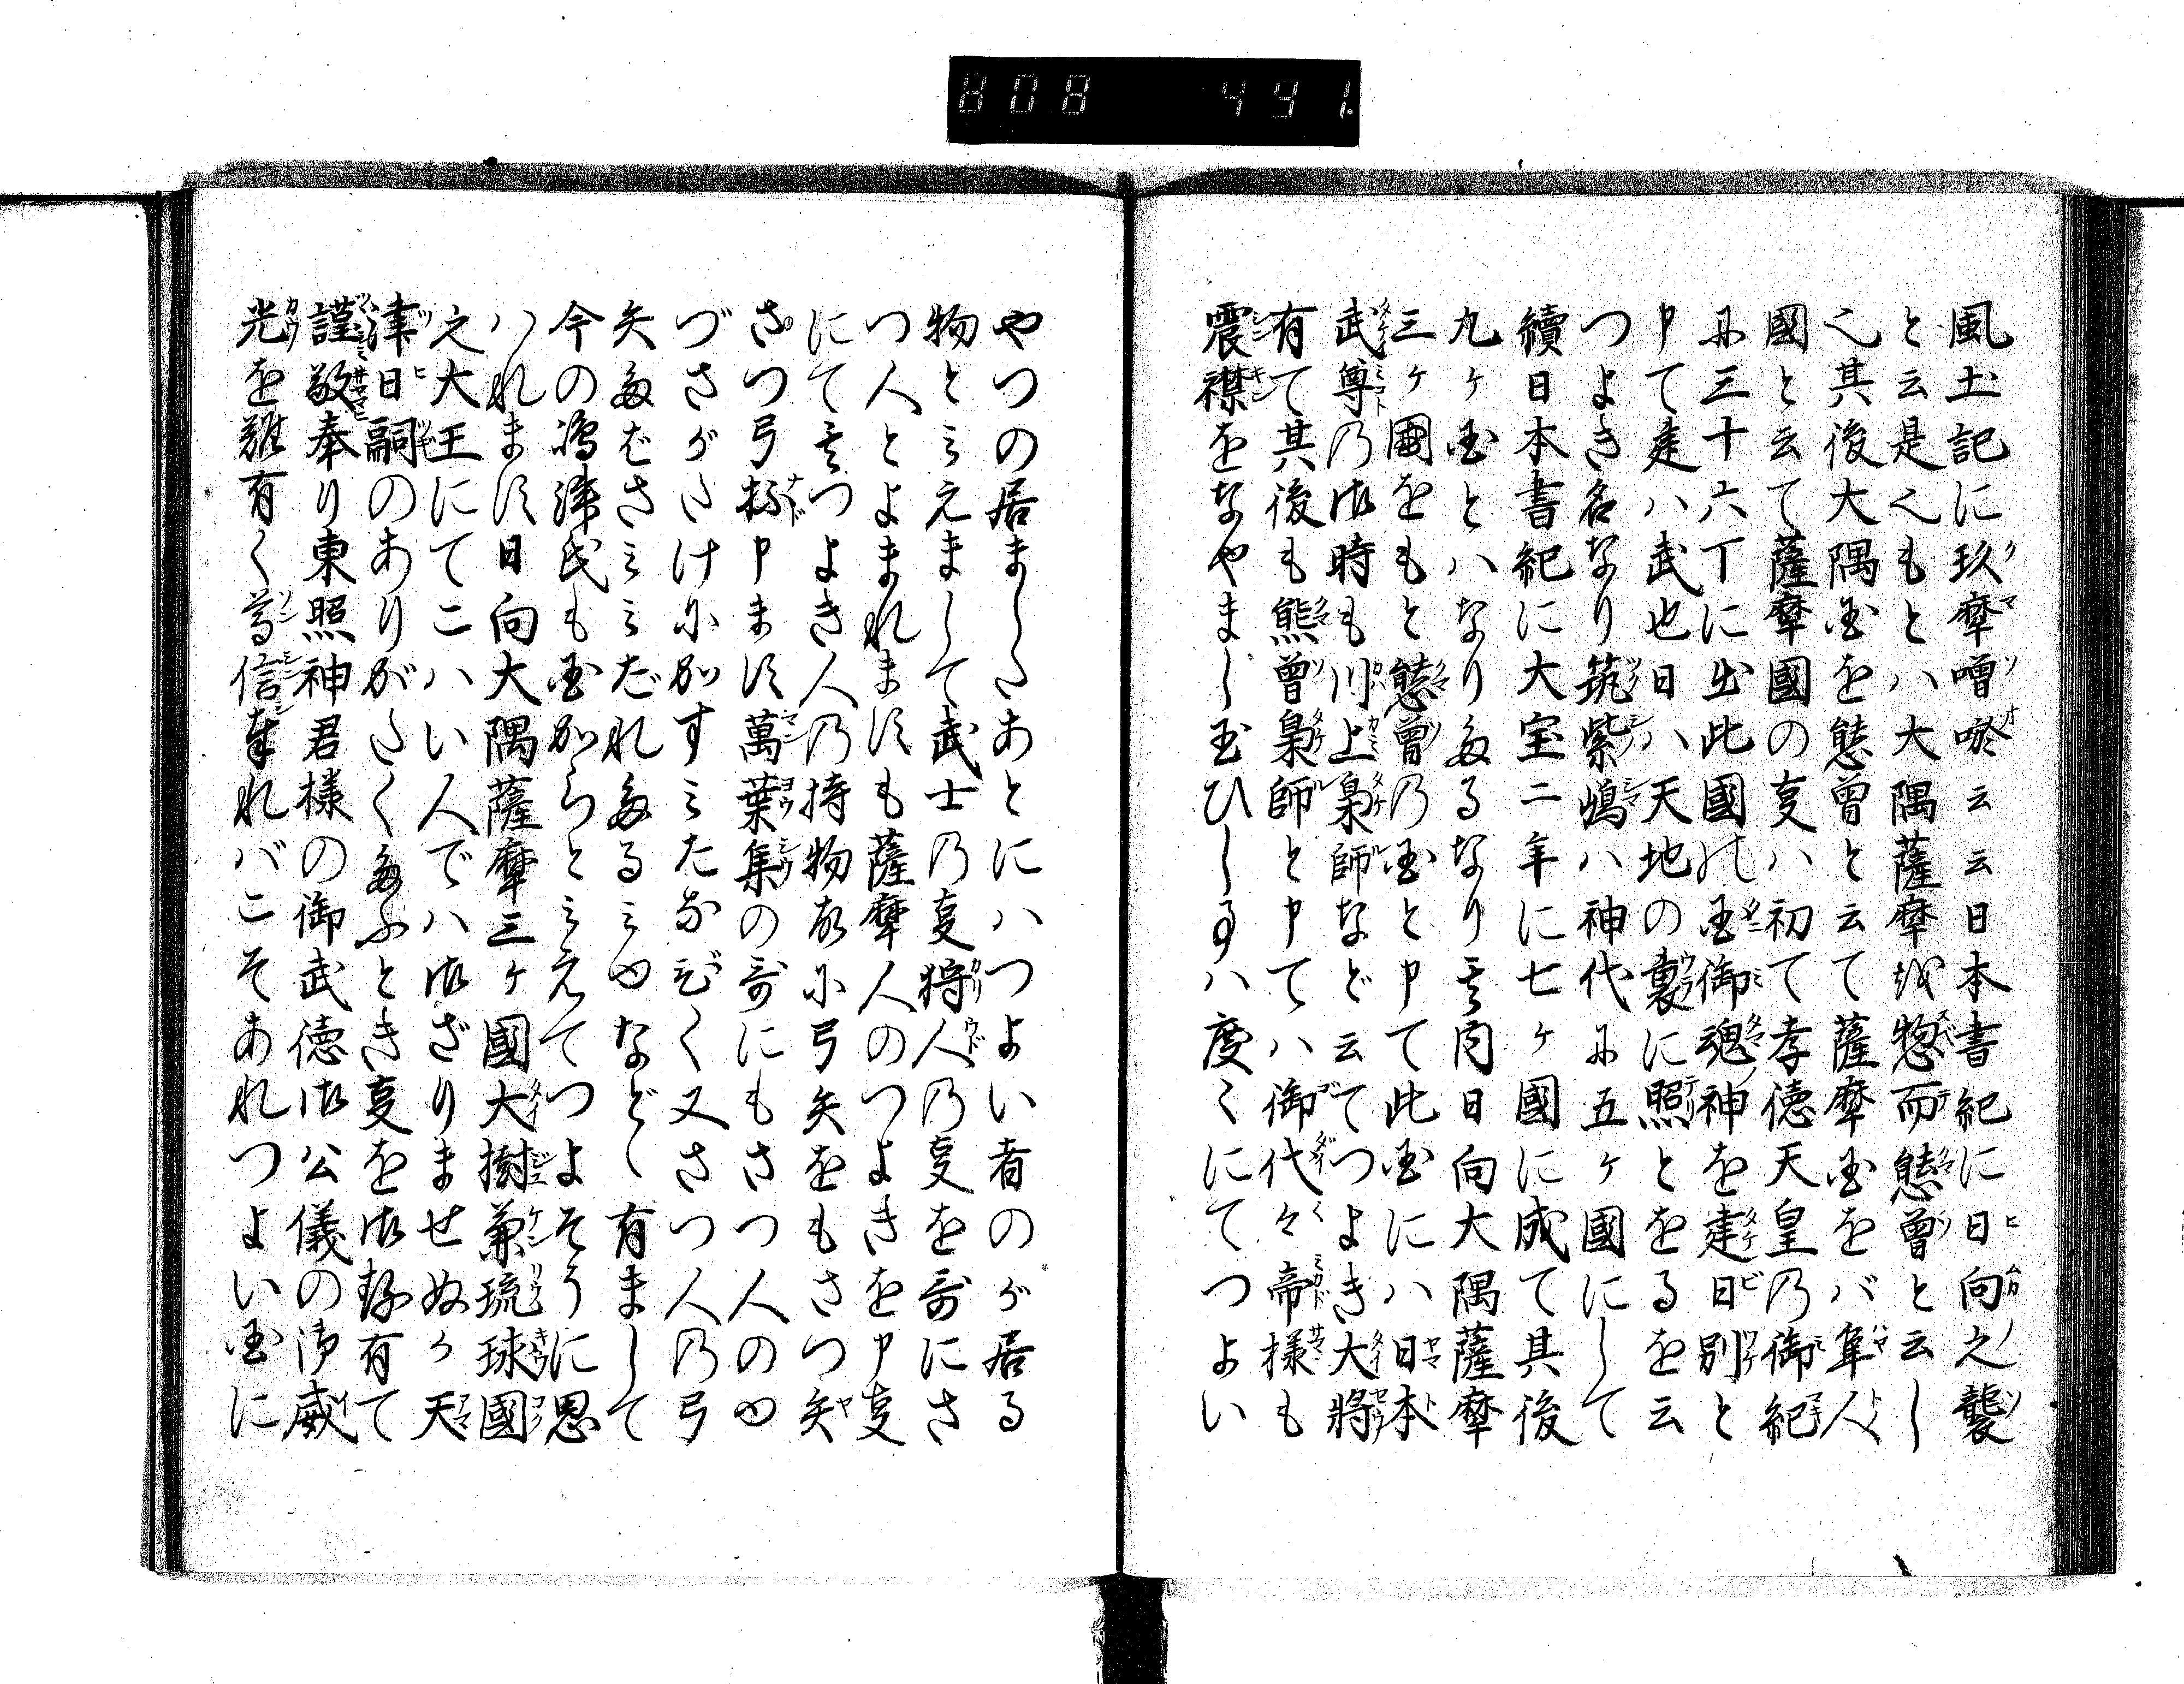 808 491.
風土記に玖摩噌唹云云日本書紀に日向之襲
と云是々もとハ大隅薩摩を惣而熊曾と云し
也其後大隅国を熊曾と云て薩摩国をバ隼人
國と云て薩摩國の叓ハ初て孝徳天皇乃御紀
に三十六丁に出此國の国御魂神を建日別と
申て建ハ武也日ハ天地の裏に照とをるを云
つよき名なり筑紫嶋ハ神代に五ヶ國にして
續日本書紀に大宝二年に七ヶ國に成て其後
九ヶ国とハなりたるなり其内日向大隅薩摩
三ヶ國をもと熊曾乃国と申て此国にハ日本
武尊乃御時も川上梟師など云てつよき大將
有て其後も熊曾梟師と申てハ御代々帝様も
震襟をなやまし玉ひし事ハ度々にてつよい
やつの居ましたあとにハつよい者のが居る
物とミえまして武士乃叓狩人乃叓を哥にさ
つ人とよまれます も薩摩人のつよきを申叓
にて其つよき人乃持物故に弓矢をもさつ矢
さつ弓抔申ます萬葉集の哥にもさつ人のゆ
づさがたけにかすミたなびく又さつ人乃弓
矢たばさミミだれたるミゆなどゝ有まして
今の嶋津氏も国からとミえてつよそうに思
ハれます日向大隅薩摩三ヶ國大樹兼琉球國
之大王にてこハい人でハ御ざりませぬか天
津日嗣のありがたくたふとき叓を御存有て
謹敬奉り東照神君様の御武徳御公儀の御威
光を難有く尊信奉れバこそあれつよい国に